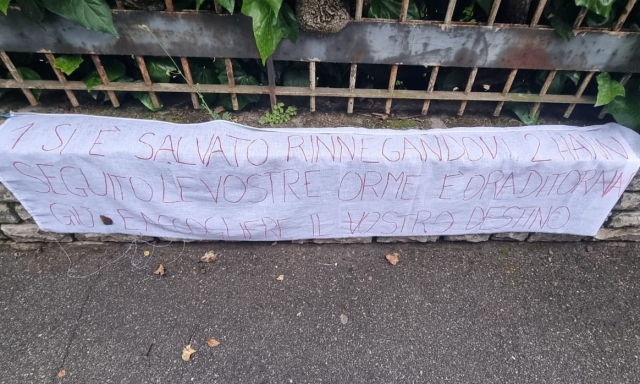 1 SI È SALVATO RINNEGANDOVI 2 HANN
SEGUITO LE VOSTRE ORME E ORA DI TORNA
GIÙ E ACCOGLIERE IL VOSTRO DESTINO